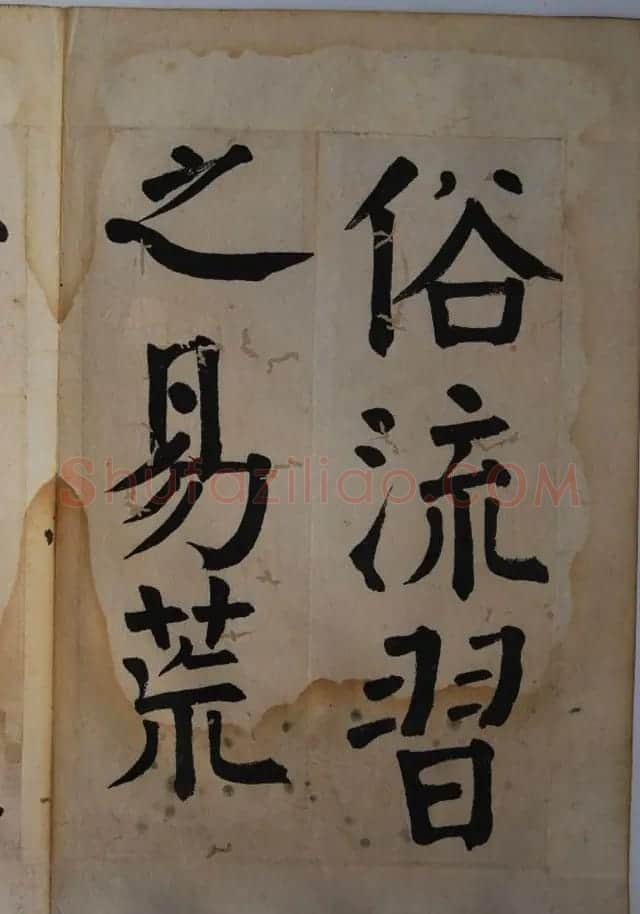 俗流習
之易荒
Shufaziliao.COM